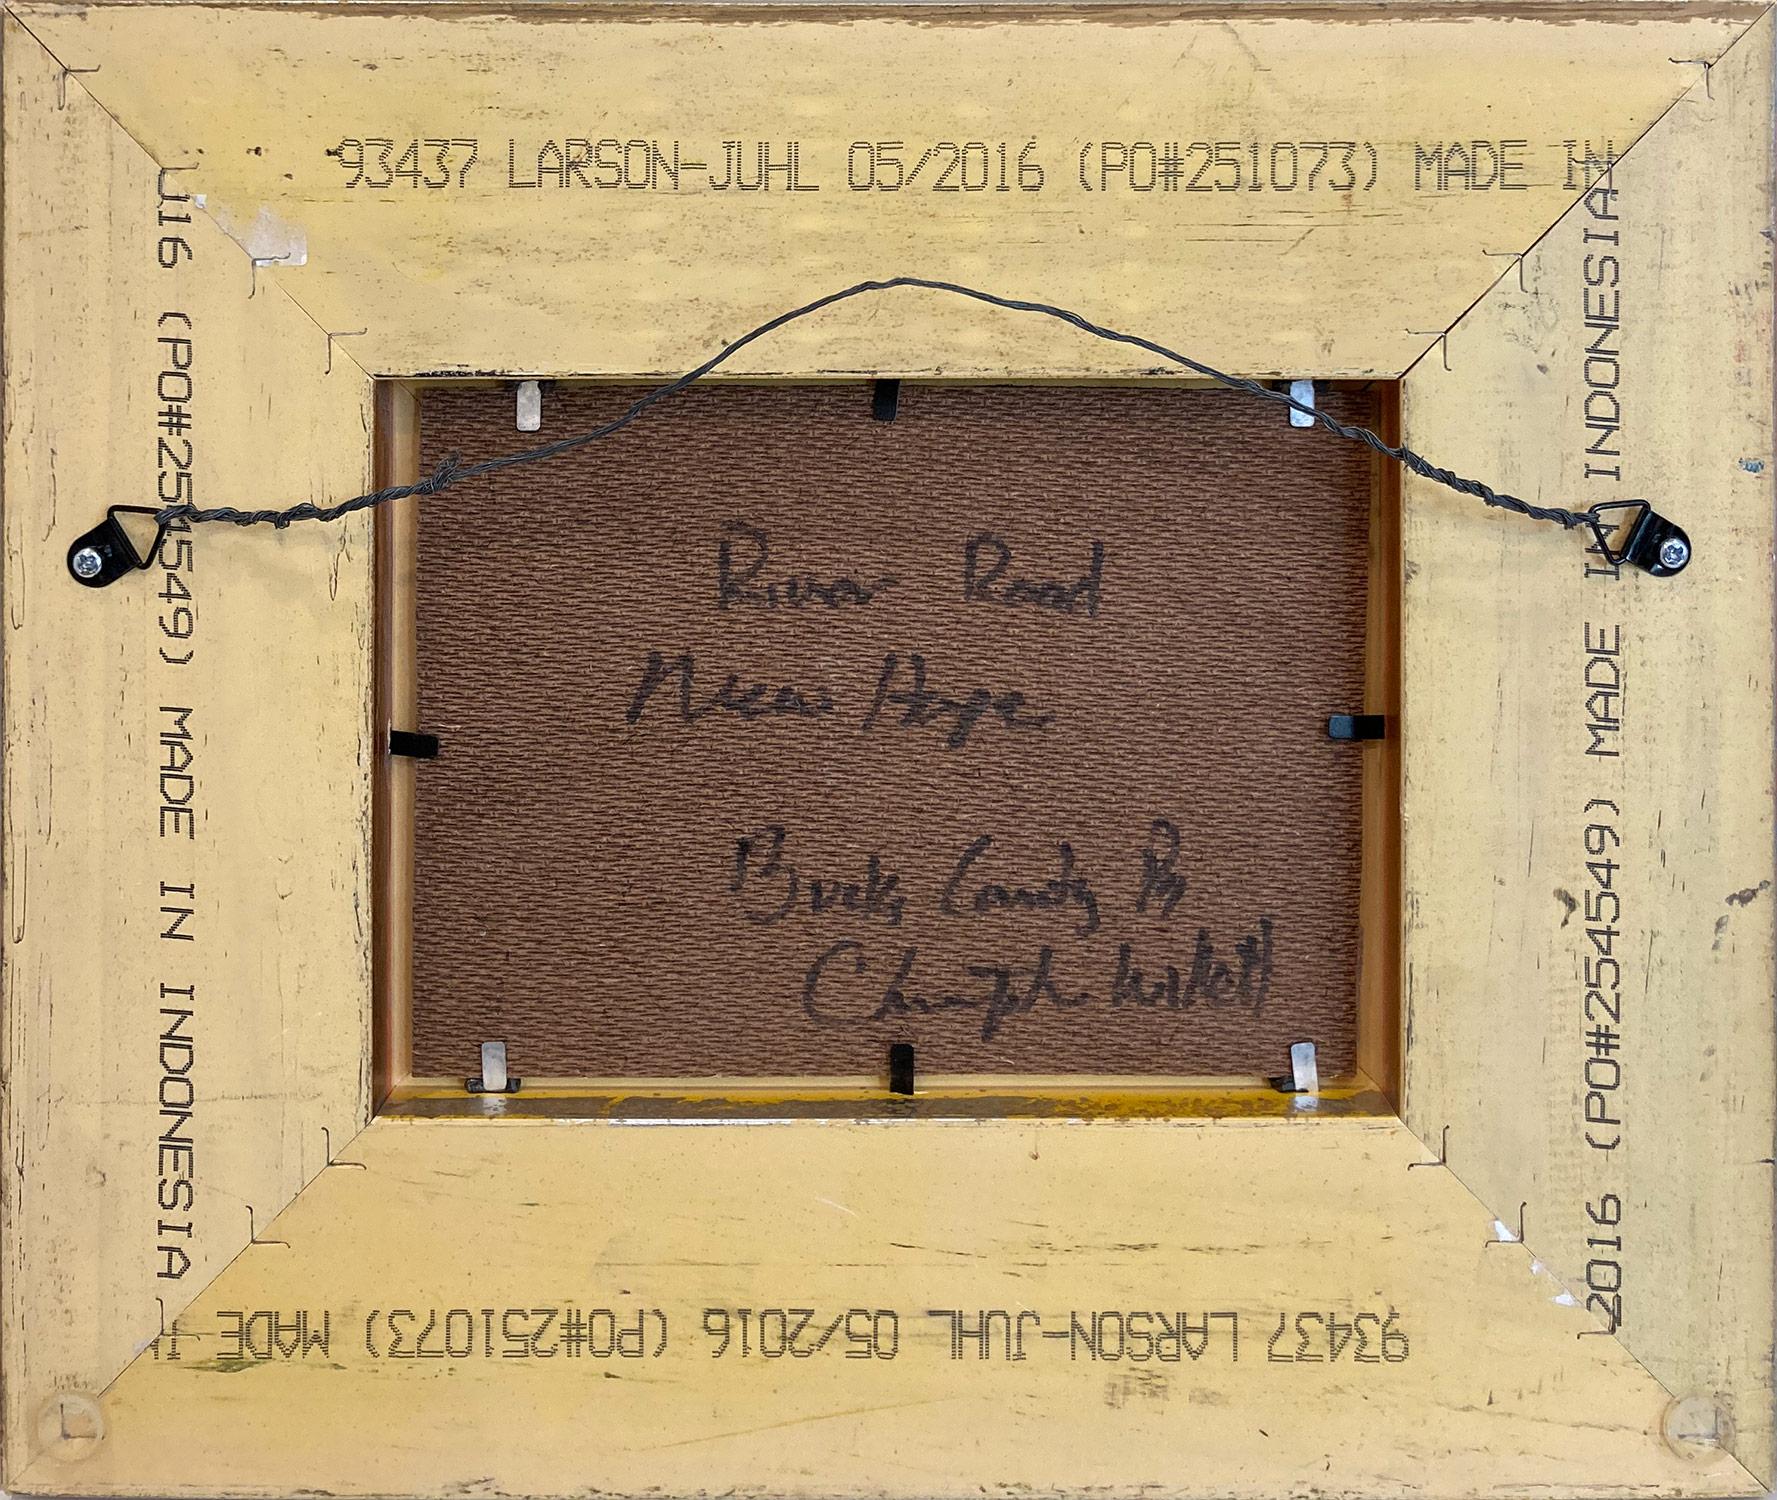 93437 LARSON-JUHL 05/2016 (PO#251073) MADE IN
016 (PO#254549) MADE IN INDONESIA
River Road
New Hope
Bucks County Pa
Christopher Willett
2016 (PO#254549) MADE IN INDONESIA
93437 LARSON-JUHL 05/2016 (PO#251073) MADE IN